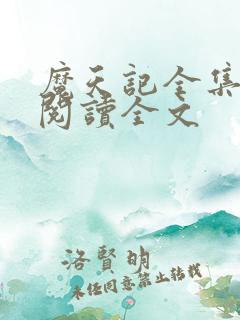 魔天記全集
閱讀全文
洛賢明
未经同意禁止转载